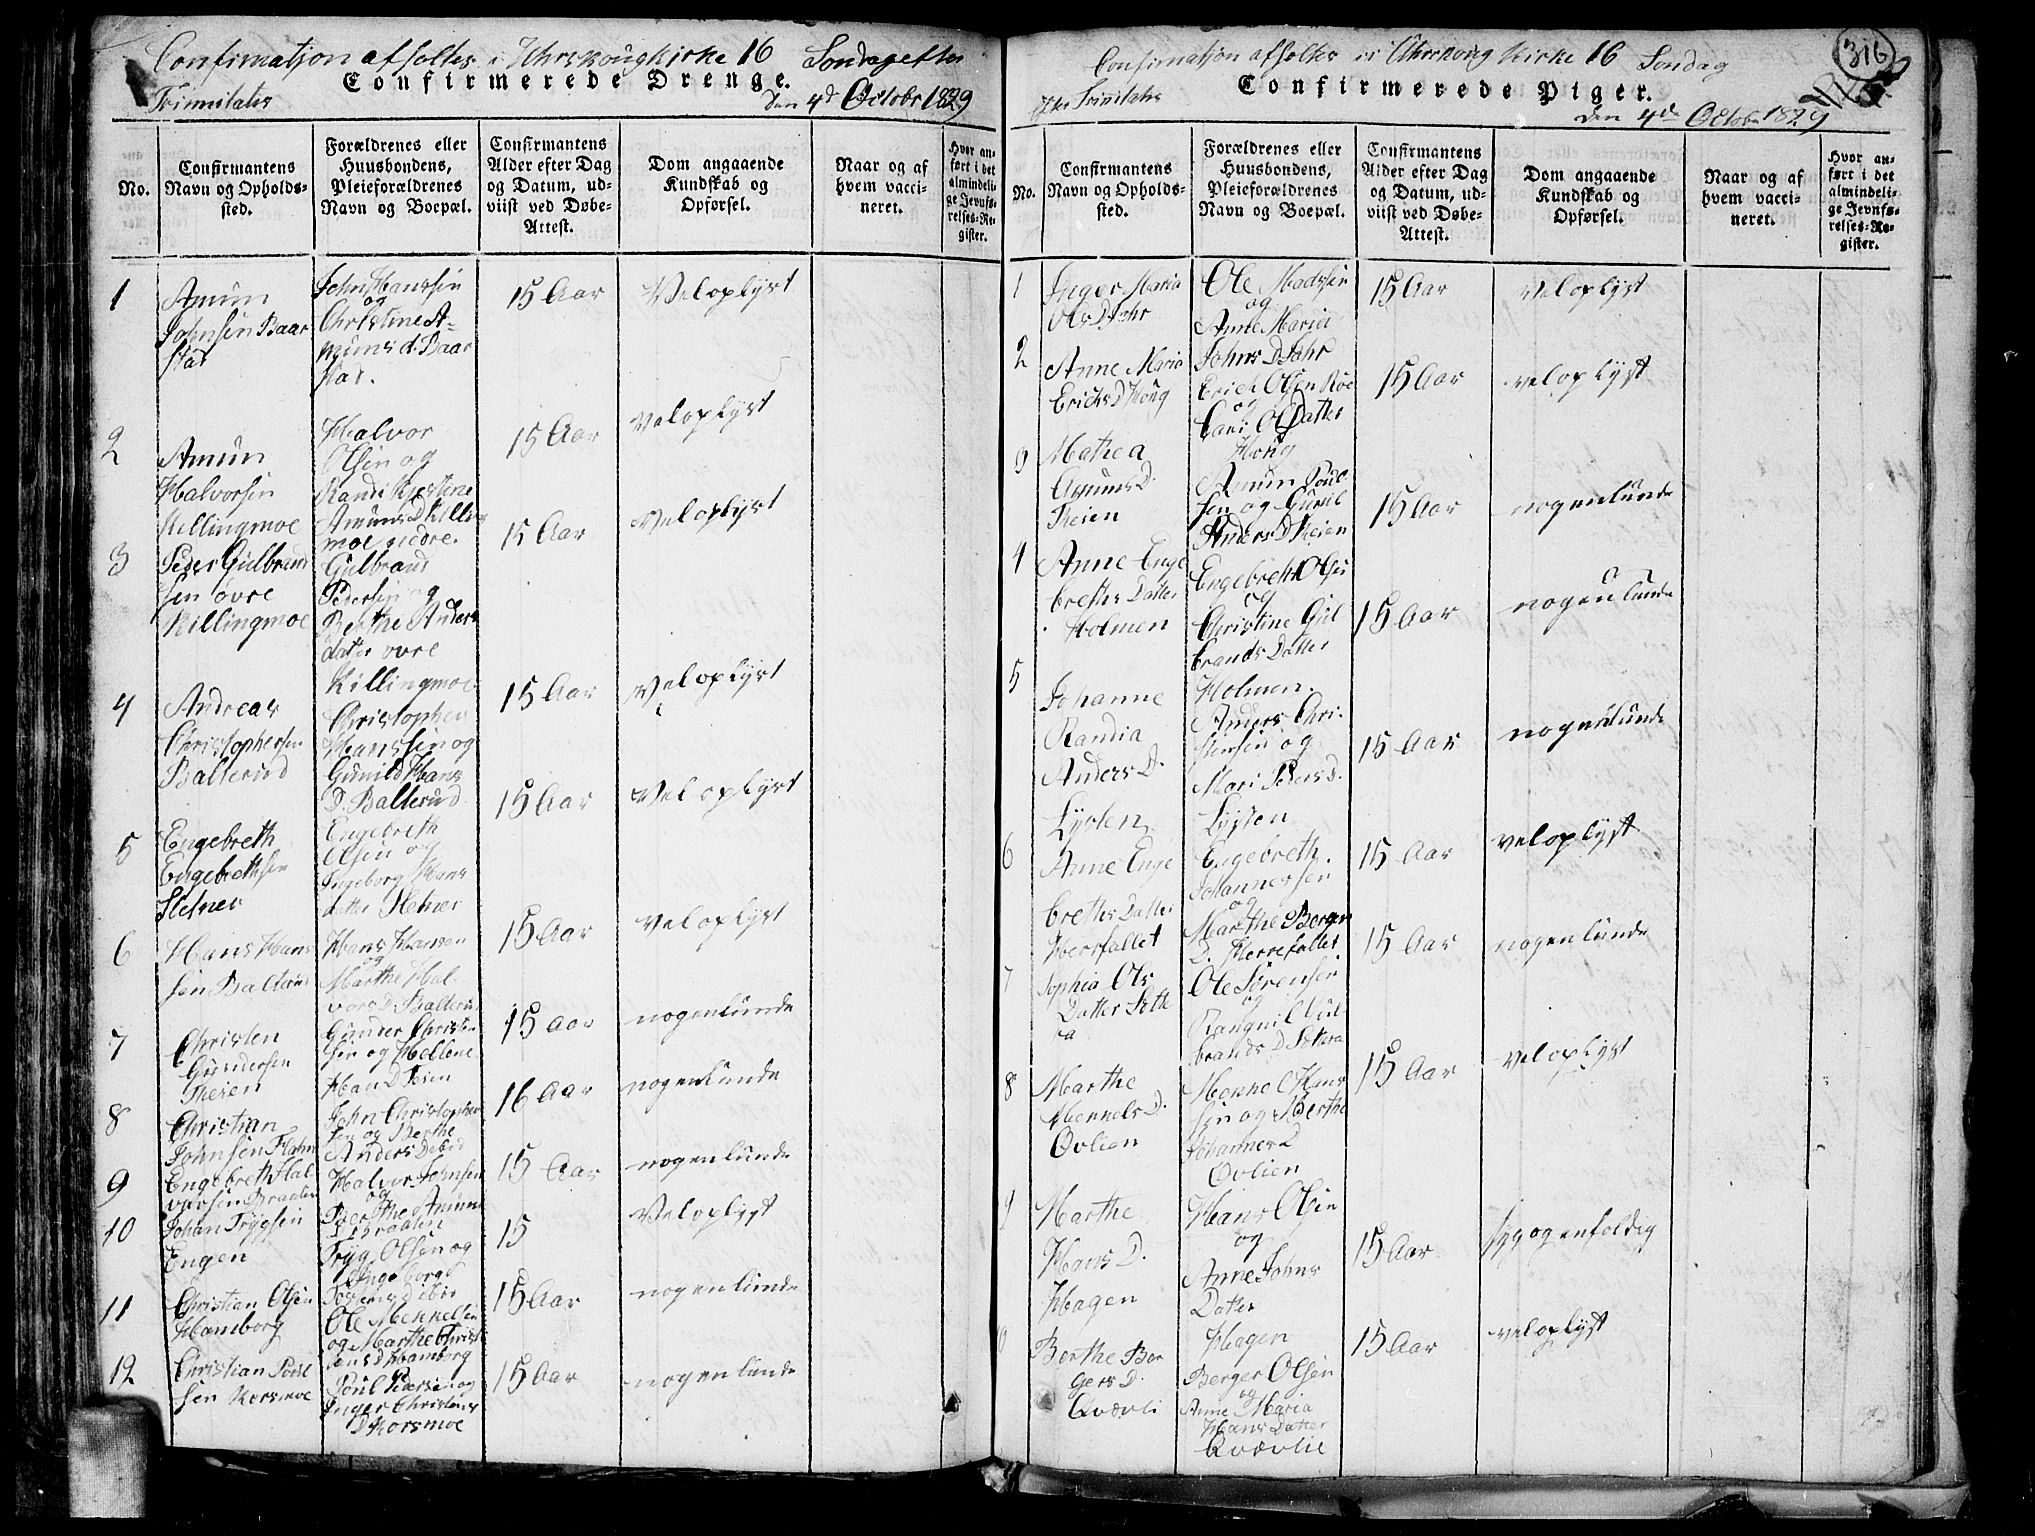 Confirmation afholtes i Uhrskoug Kirke 16 Søndag efter
Confirmerede Drenge.
Trinnitatis den 4d Octobr 1829
No.
Confirmantens Navn og Opholdssted.
Forældrenes eller Huusbondens, Pleieforældrenes Navn og Boepæl.
Confirmantens Alder efter Dag og Datum, udviist ved Døbe-Attest.
Dom angaaende Kundskab og Opførsel.
Naar og af hvem vaccineret.
Hvor anført i det almindelige Jevnførelses-Register.
1
Amun
Johnsen Baar
stad
John Hanssen
og
Christine A-
muns d. Baar
stad.
15 Aar
Veloplyst
2
Amun
Halvorsen
Killingmoe
Halvor
Olsen og
Randi Kjestine
Amuns D Killing
moe nedre.
15 Aar
Veloplyst
3
Peder Gulbrand
sen øvre
Killingmoe
Gulbrand
Pedersen og
Berthe Anders
datter øvre
Killingmoe
15 Aar
Veloplyst
4
Andreas
Christophersen
Ballerud
Christopher
Hanssen og
Gunild Hans
D. Ballerud
15 Aar
Veloplyst
5
Engebreth
Engebrethsen
Stetner
Engebreth
Olsen og
Ingeborg Hans
datter Stetner
15 Aar
Veloplyst
6
Hans Hans
sen Ballerud
Hans Hansen
og
Marthe Hal
vors D. Ballerud
15 Aar
Veloplyst
7
Christen
Gundersen
Theien
Gunder Christen
sen og Hellene
Han D Teien
15 Aar
nogenlunde
8
Christian
Johnsen
John Christopher
sen og Berthe
Anders D
16 Aar
nogenlunde
9
Engebreth Hal
vorsen Braaten
Halvor Johnsen
og
Berthe Amuns
D Braaten
15 Aar
nogenlunde
10
Johan Trygsen
Engen
Tryg Olsen og
Ingeborg
15
Veloplyst
11
Christian Olsen
Hamborg
Ole Mennelsen
og Marthe Christ
ens D Hamborg
15 Aar
nogenlunde
12
Christian Poul
sen Korsmoe
Poul Pedersen og
Inger Christens
D Korsmoe
15 Aar
nogenlunde
316
Confirmation afholtes i Uhrskoug Kirke 16 Søndag
Confirmerede Piger.
efter Trinitatis den 4de Octobr 1829
No.
Confirmantens Navn og Opholdssted.
Forældrenes eller Huusbondens, Pleieforældrenes Navn og Boepæl.
Confirmantens Alder efter Dag og Datum, udviist ved Døbe-Attest.
Dom angaaende Kundskab og Opførsel.
Naar og af hvem vaccineret.
Hvor anført i det almindelige Jevnførelses-Register.
1
Inger Maria
Ols D Jahr
Ole Madssen
og
Anne Maria
Johns D Jahr
15 Aar
veloplyst
2
Anne Maria
Erichs D Houg
Erich Olsen
og
Kari Ols Datter
Houg
15 Aar
veloplyst
3
Mathea
Amuns D.
Theien
Amun Poul
sen og Guril
Anders D Theien
15 Aar
nogenlunde
4
Anne Enge
breths Datter
Holmen
Engebreth Olsen
og
Christine Gul
brands Datter
Holmen.
15 Aar
nogenlunde
5
Johanne
Randia
Anders D.
Lysten
Anders Chri-
stensen og
Mari Peders D.
Lysten
15 Aar
nogenlunde
6
Anne Enge
breths Datter
Herfallet
Engebreth
Johannessen
og
Marthe Berger
D. Herrefallet
15 Aar
veloplyst
7
Sophia Ols
Datter Sethe
ra
Ole Sørensen
og
Rangnil Gul
brands D Setera
15 Aar
nogenlunde
8
Marthe
Mennels D.
Øvlien
Mennel Hans
sen og Berthe
Johannes D
Øvlien
15 Aar
veloplyst
9
Marthe
Hans D.
Hagen
Hans Olsen
og
Anne Johns
Datter
Hagen
15 Aar
syg og enfoldig
10
Berthe Ber
gers D.
Qværli
Berger Olsen
og
Anne Maria
Hans Datter
Qværlie
15 Aar
veloplyst